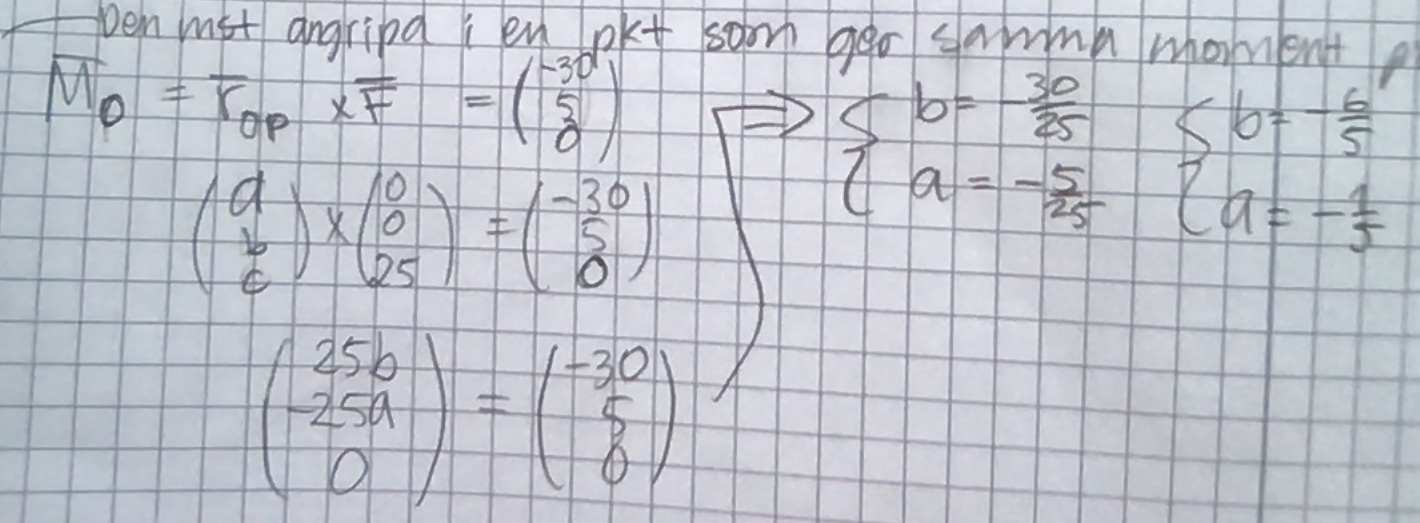 Den mst angripa i en pkt som ger samma moment
M̅o = r̅op × F̅ = (-30 5 0)
(a b c) × (0 0 25) = (-30 5 0)
(25b -25a 0) = (-30 5 0)
⇒ { b = -30/25 { b = -6/5
a = -5/25 a = -1/5